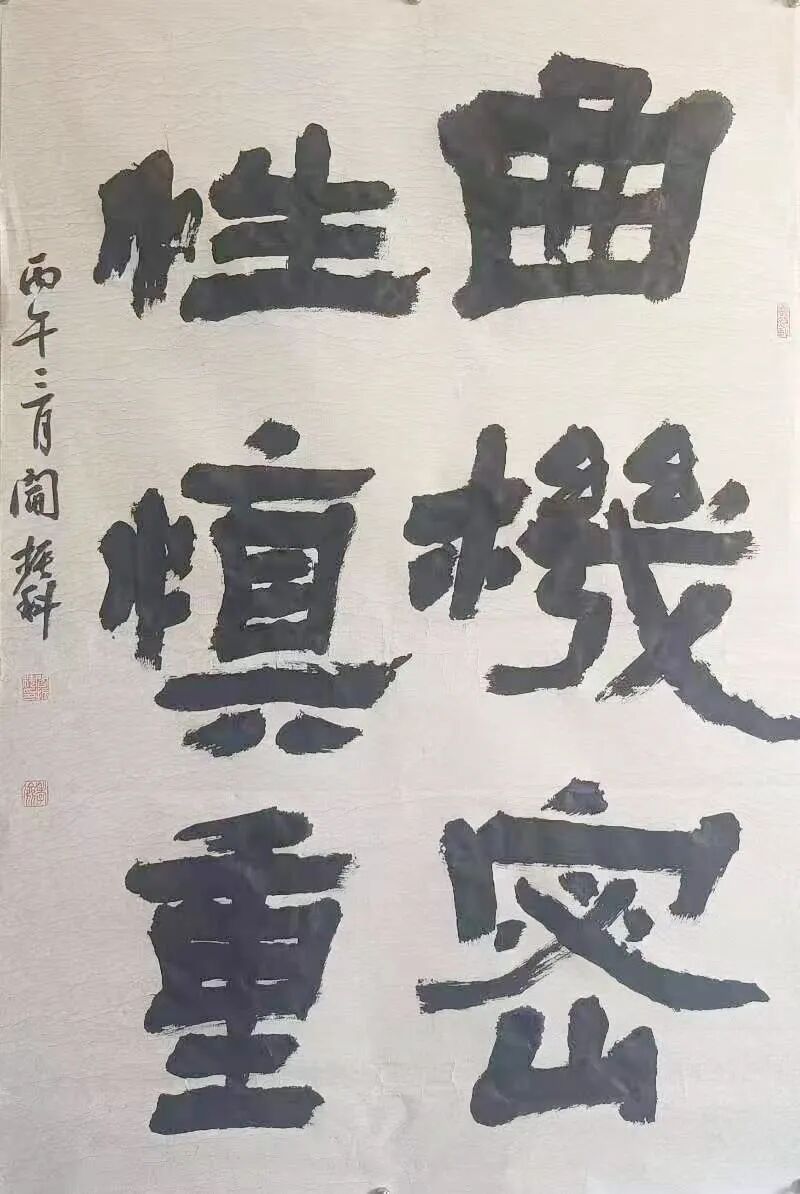 曲機密
性慎重
丙午二月 振科